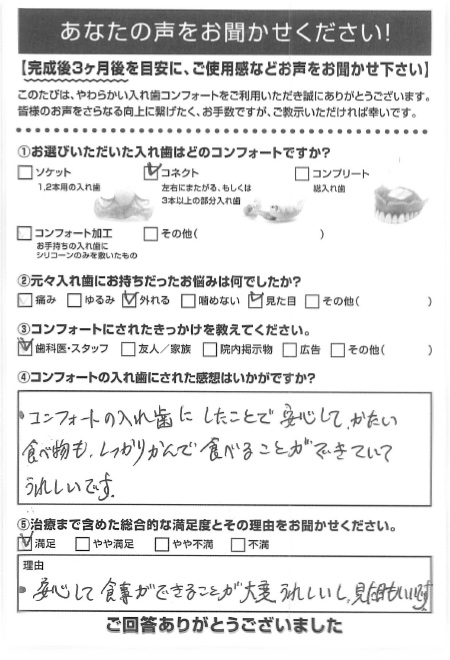 あなたの声をお聞かせください!
【完成後3ヶ月後を目安に、ご使用感などお声をお聞かせ下さい】
このたびは、やわらかい入れ歯コンフォートをご利用いただき誠にありがとうございます。
皆様のお声をさらなる向上に繋げたく、お手数ですが、ご教示いただければ幸いです。
①お選びいただいた入れ歯はどのコンフォートですか?
ソケット コネクト コンプリート
1,2本用の入れ歯 左右にまたがる、もしくは 総入れ歯
3本以上の部分入れ歯
コンフォート加工 その他( )
お手持ちの入れ歯に
シリコーンのみを敷いたもの
②元々入れ歯にお持ちだったお悩みは何でしたか?
痛み ゆるみ 外れる 噛めない 見た目 その他( )
③コンフォートにされたきっかけを教えてください。
歯科医・スタッフ 友人/家族 院内掲示物 広告 その他( )
④コンフォートの入れ歯にされた感想はいかがですか?
・コンフォートの入れ歯にしたことで安心して、かたい
食べ物も、しっかりかんで食べることができていて
うれしいです。
⑤治療まで含めた総合的な満足度とその理由をお聞かせください。
満足 やや満足 やや不満 不満
理由
・安心して食事ができることが大変うれしいし、見た目もいいです
ご回答ありがとうございました